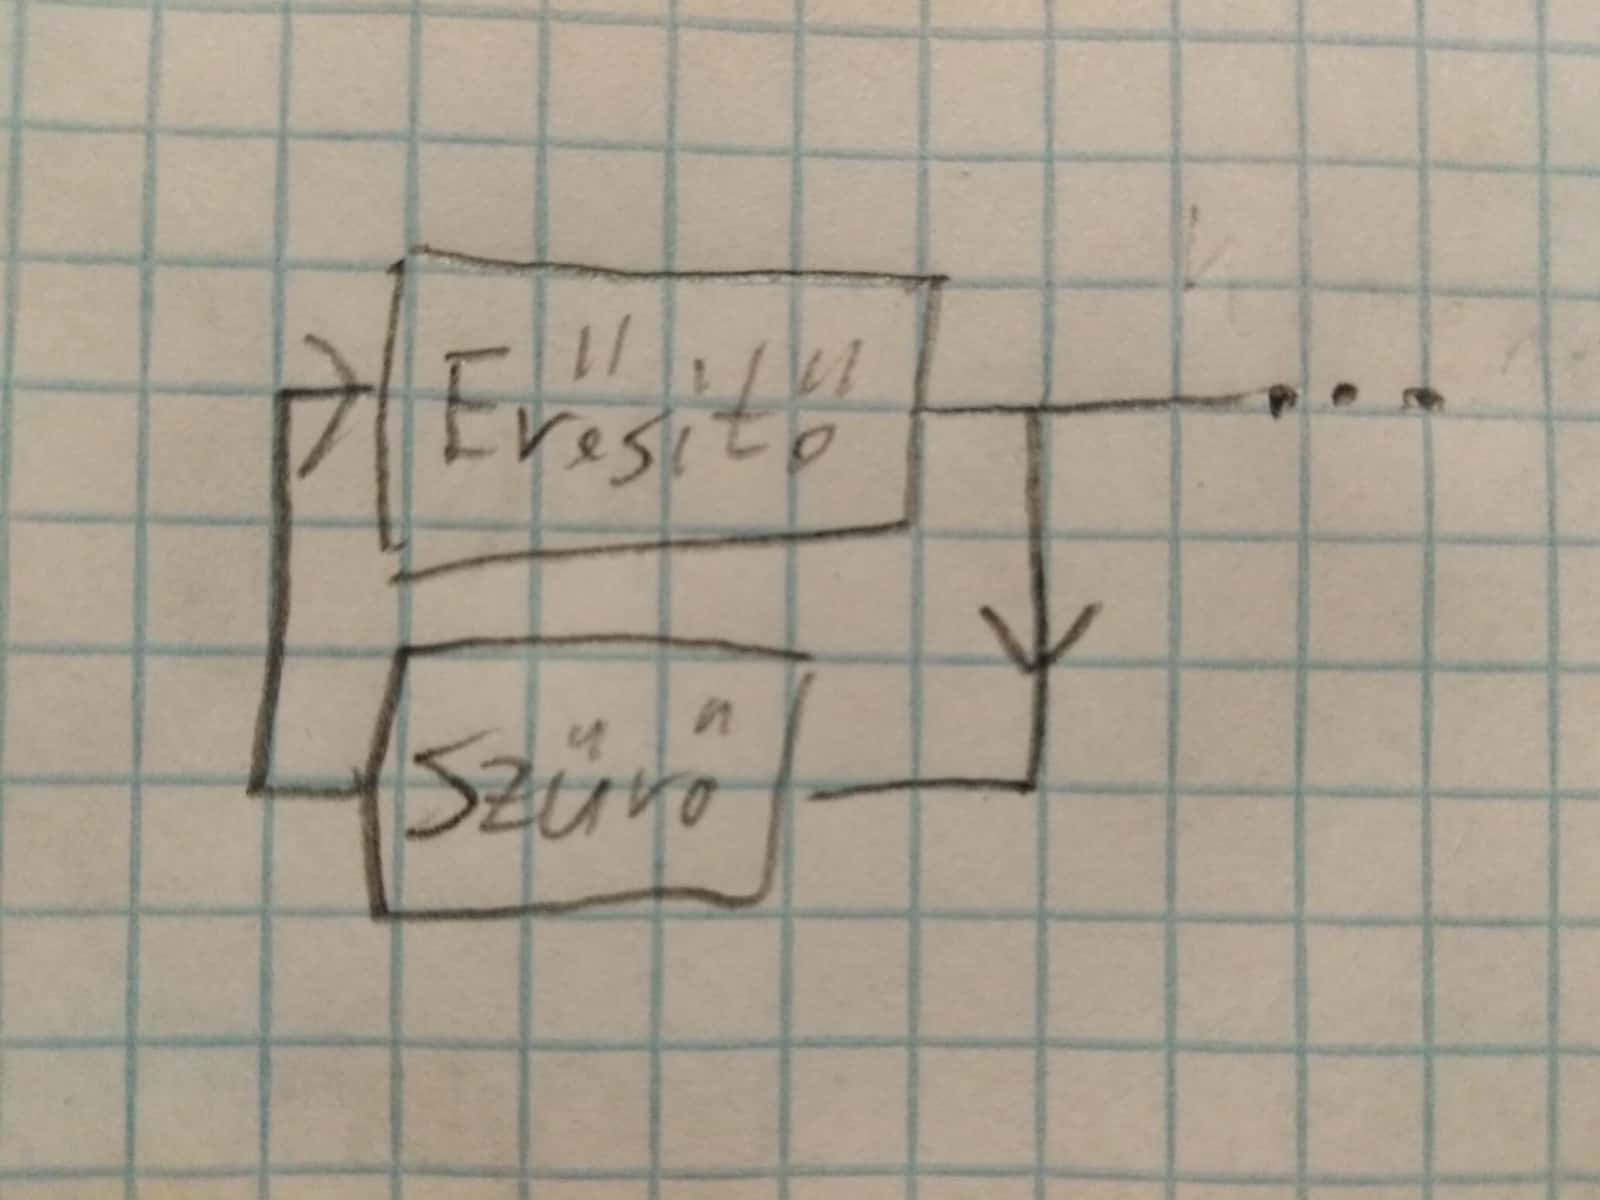 Erősítő
Szűrő